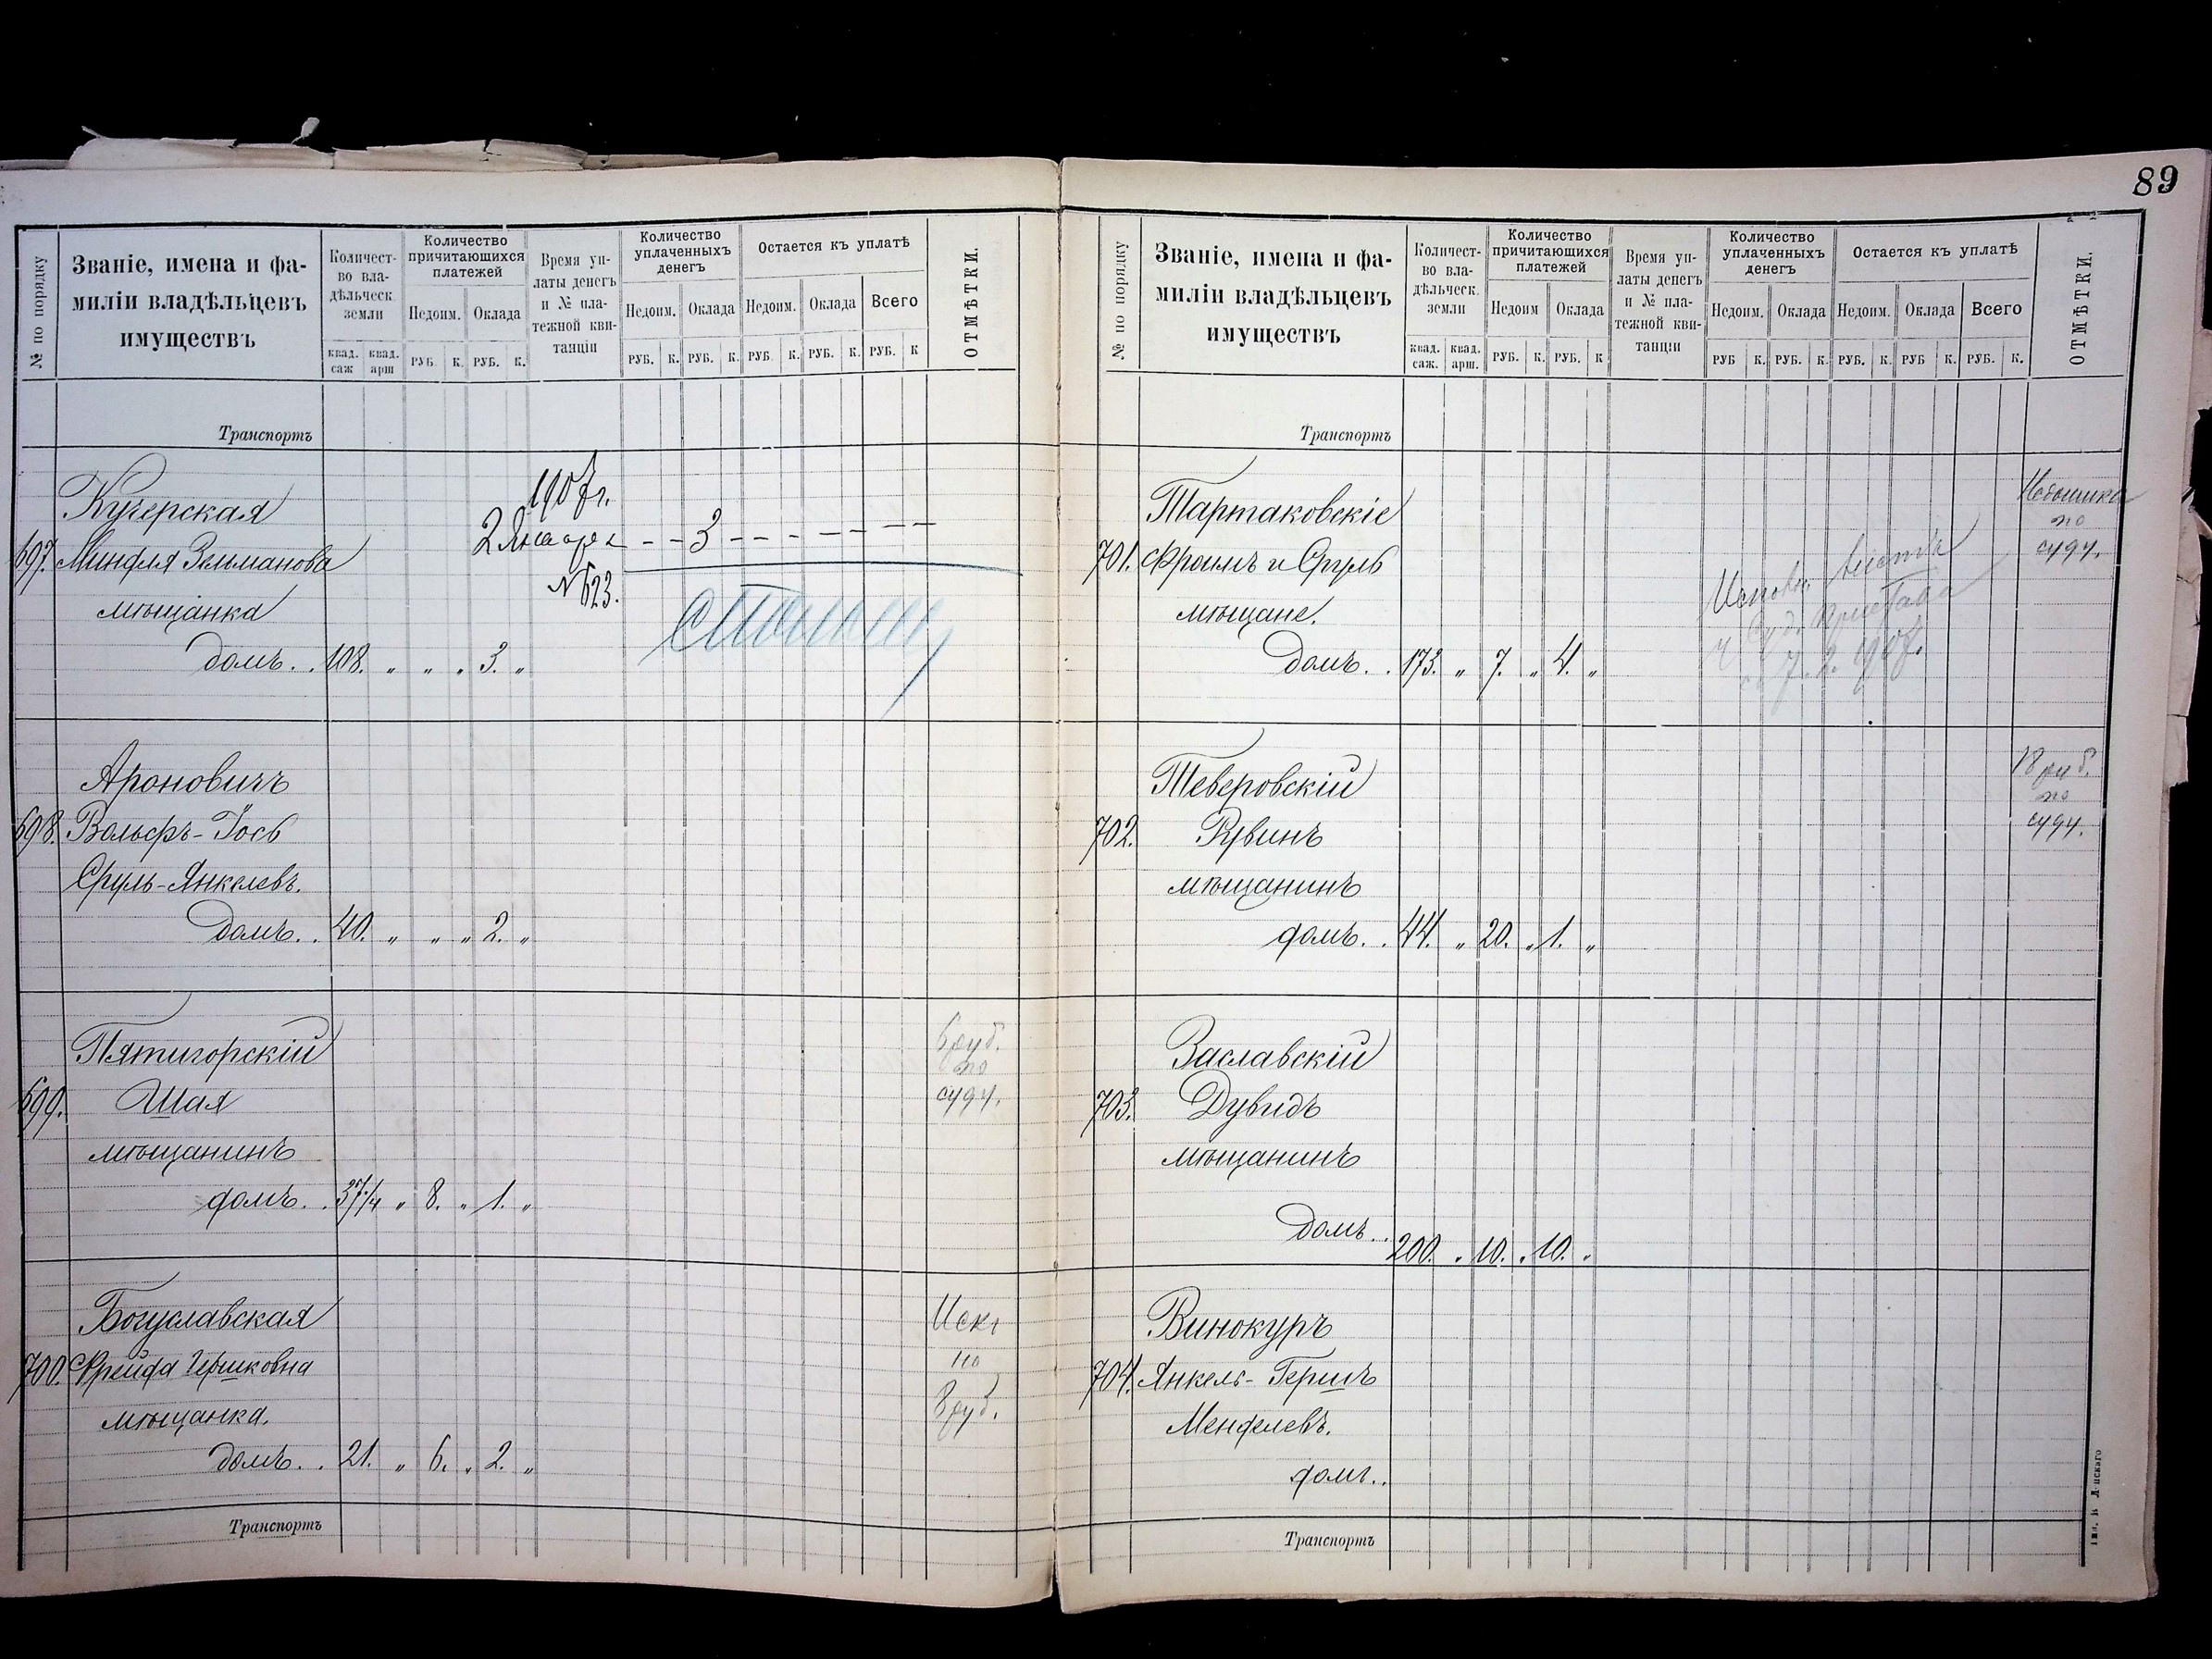 89
№ по порядку
Званіе, имена и фа-
миліи владѣльцевъ
имуществъ
Количест-
во вла-
дѣльческ.
земли
квад. саж
квад. арш
Количество
причитающихся
платежей
Недоим.
Оклада
РУБ. К. РУБ. К.
Время уп-
латы денегъ
и № пла-
тежной кви-
танціи
Количество
уплаченныхъ
денегъ
Недоим. Оклада
РУБ. К. РУБ. К.
Остается къ уплатѣ
Недоим. Оклада Всего
РУБ К. РУБ. К. РУБ. К
ОТМѢТКИ.
Транспортъ
Кучерская
697. Миндля Зельманова
мѣщанка
домъ.. 108. „ „ „ 3. „
1907 г.
2 Января - - 3 - - - - - - -
№ 623.
Ароновичъ
698. Вольфъ-Іось
Сруль-Янкелевъ.
домъ.. 40. „ „ „ 2. „
Пятигорскій
699. Шая
мѣщанинъ
домъ.. 37 1/4 „ 8. „ 1. „
6 руб.
по
суду.
Богуславская
700. Фрейда Гершковна
мѣщанка.
домъ.. 21. „ 6. „ 2. „
по
8 руб.
Транспортъ
№ по порядку
Званіе, имена и фа-
миліи владѣльцевъ
имуществъ
Количест-
во вла-
дѣльческ.
земли
квад. саж.
квад. арш.
Количество
причитающихся
платежей
Недоим
Оклада
РУБ. К. РУБ. К
Время уп-
латы денегъ
и № пла-
тежной кви-
танціи
Количество
уплаченныхъ
денегъ
Недоим. Оклада
РУБ К. РУБ. К.
Остается къ уплатѣ
Недоим. Оклада Всего
РУБ. К. РУБ К. РУБ. К.
ОТМѢТКИ.
Транспортъ
Тартаковскіе
701. Фроимъ и Сруль
мѣщане.
домъ.. 173. „ 7. „ 4. „
листъ
Пристава
1907.
по
суду.
Теверовскій
702. Рувинъ
мѣщанинъ
домъ.. 44. „ 20. „ 1. „
18 руб.
по
суду.
Заславскій
703. Дувидъ
мѣщанинъ
домъ.. 200. „ 10. „ 10. „
Винокуръ
704. Янкель-Гершъ
Менделевъ.
домъ..
Транспортъ